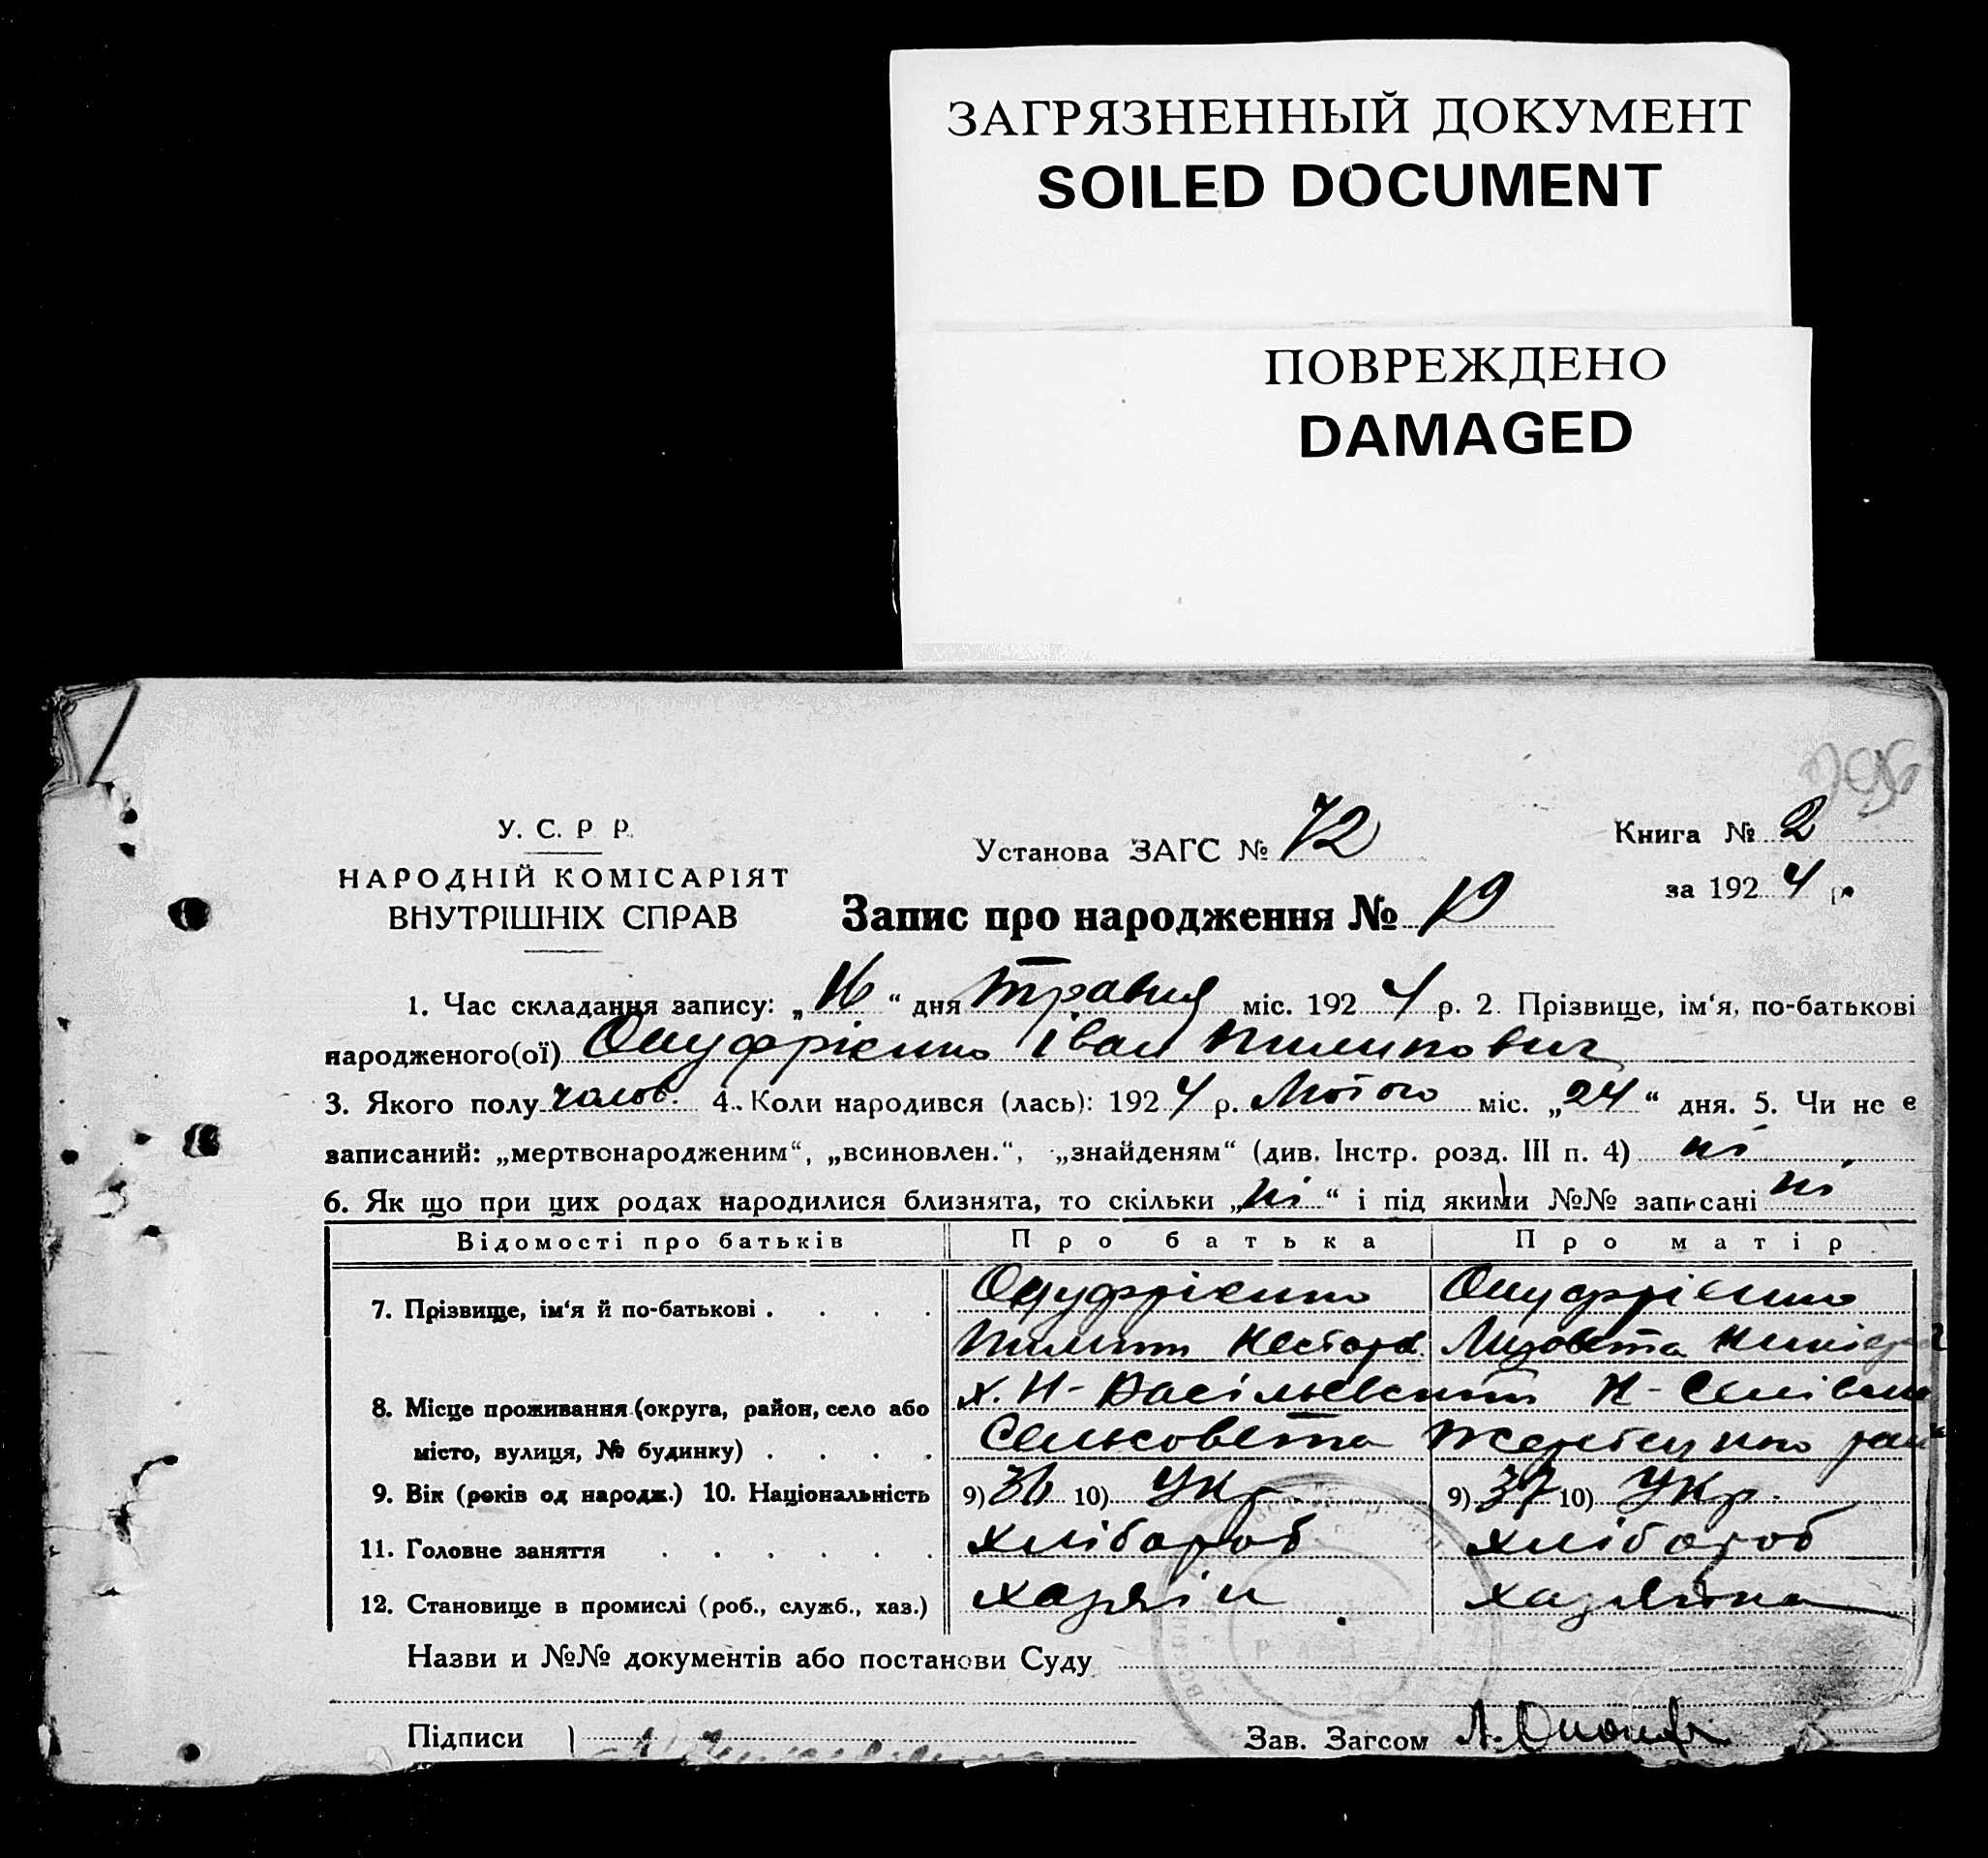 ЗАГРЯЗНЕННЫЙ ДОКУМЕНТ
SOILED DOCUMENT
ПОВРЕЖДЕНО
DAMAGED
У. С. Р Р.
НАРОДНІЙ КОМІСАРІЯТ
ВНУТРІШНІХ СПРАВ
Установа ЗАГС № 72
Книга № 2
за 1924 р.
Запис про народження № 19
1. Час складання запису: „16“ дня травня міс. 1924 р. 2. Прізвище, ім‘я, по-батькові
народженого(ої) Онуфрієнко Іван Пилипович
3. Якого полу чолов. 4. Коли народився (лась): 1924 р. Лютого міс. „24“ дня. 5. Чи не є
записаний: „мертвонародженим“, „всиновлен.“, „знайденям“ (див. Інстр. розд. III п. 4) ні
6. Як що при цих родах народилися близнята, то скільки „ні“ і під якими №№ записані ні
Відомості про батьків Про батька Про матір
7. Прізвище, ім‘я й по-батькові . . . . Онуфрієнко Онуфрієнко
Пилип Нестор. Лизовета
8. Місце проживання (округа, район, село або х. Н-Васільевский Н-
місто, вулиця, № будинку) . . . . Сельсовета
9. Вік (років од народж.) 10. Національність 9) 36 10) Укр. 9) 37 10) Укр.
11. Головне заняття . . . . . . хлібороб хлібороб
12. Становище в промислі (роб., служб., хаз.) хазяїн хазяйка
Назви и №№ документів або постанови Суду
Підписи Зав. Загсом